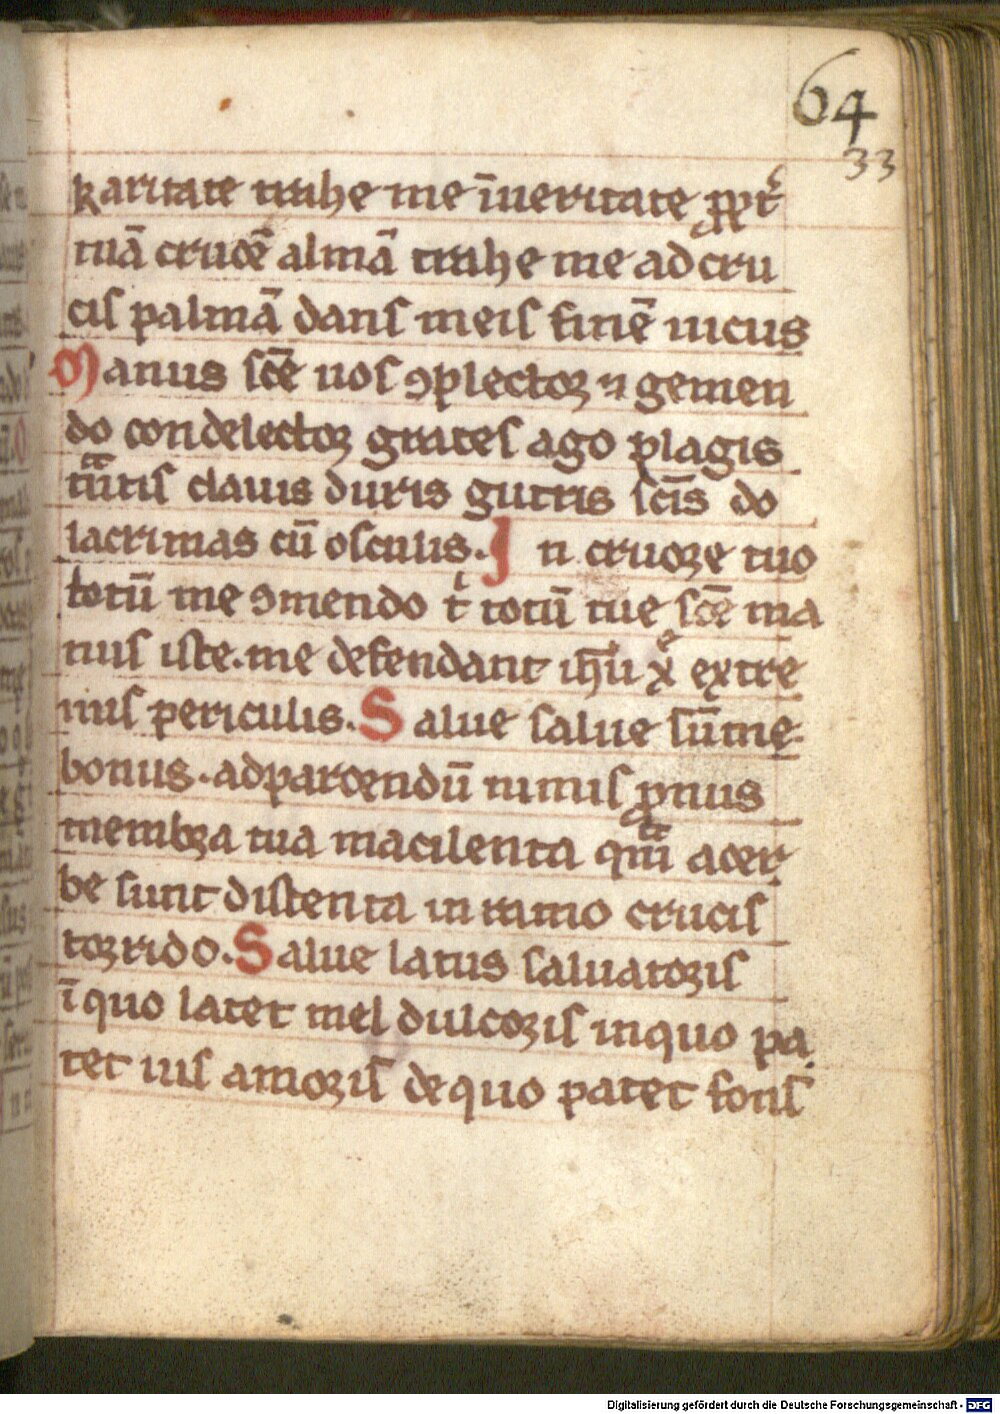 64
33
karitate trahe me īueritate ꝓpt᷒
tuā crucē almā trahe me ad cru
cis palmā dans meis finē uicus
Manus scē uos ꝯplector ⁊ gemen
do condelector grates ago plagis
tātis clauis duris guttis scīs do
lacrimas cū osculis. In cruore tuo
totū me ꝯmendo tͥ totū tue scē ma
nus iste. me defendant ihū xͤ extre
mis periculis. Salue salue sūme
bonus. ad parcendū nimis ꝓnus
membra tua macilenta qm̄ acer
be sunt distenta in ramo crucis
torrido. Salue latus saluatoris
ī quo latet mel dulcoris in quo pa
tet uis amoris de quo patet fons
Digitalisierung gefördert durch die Deutsche Forschungsgemeinschaft - DFG